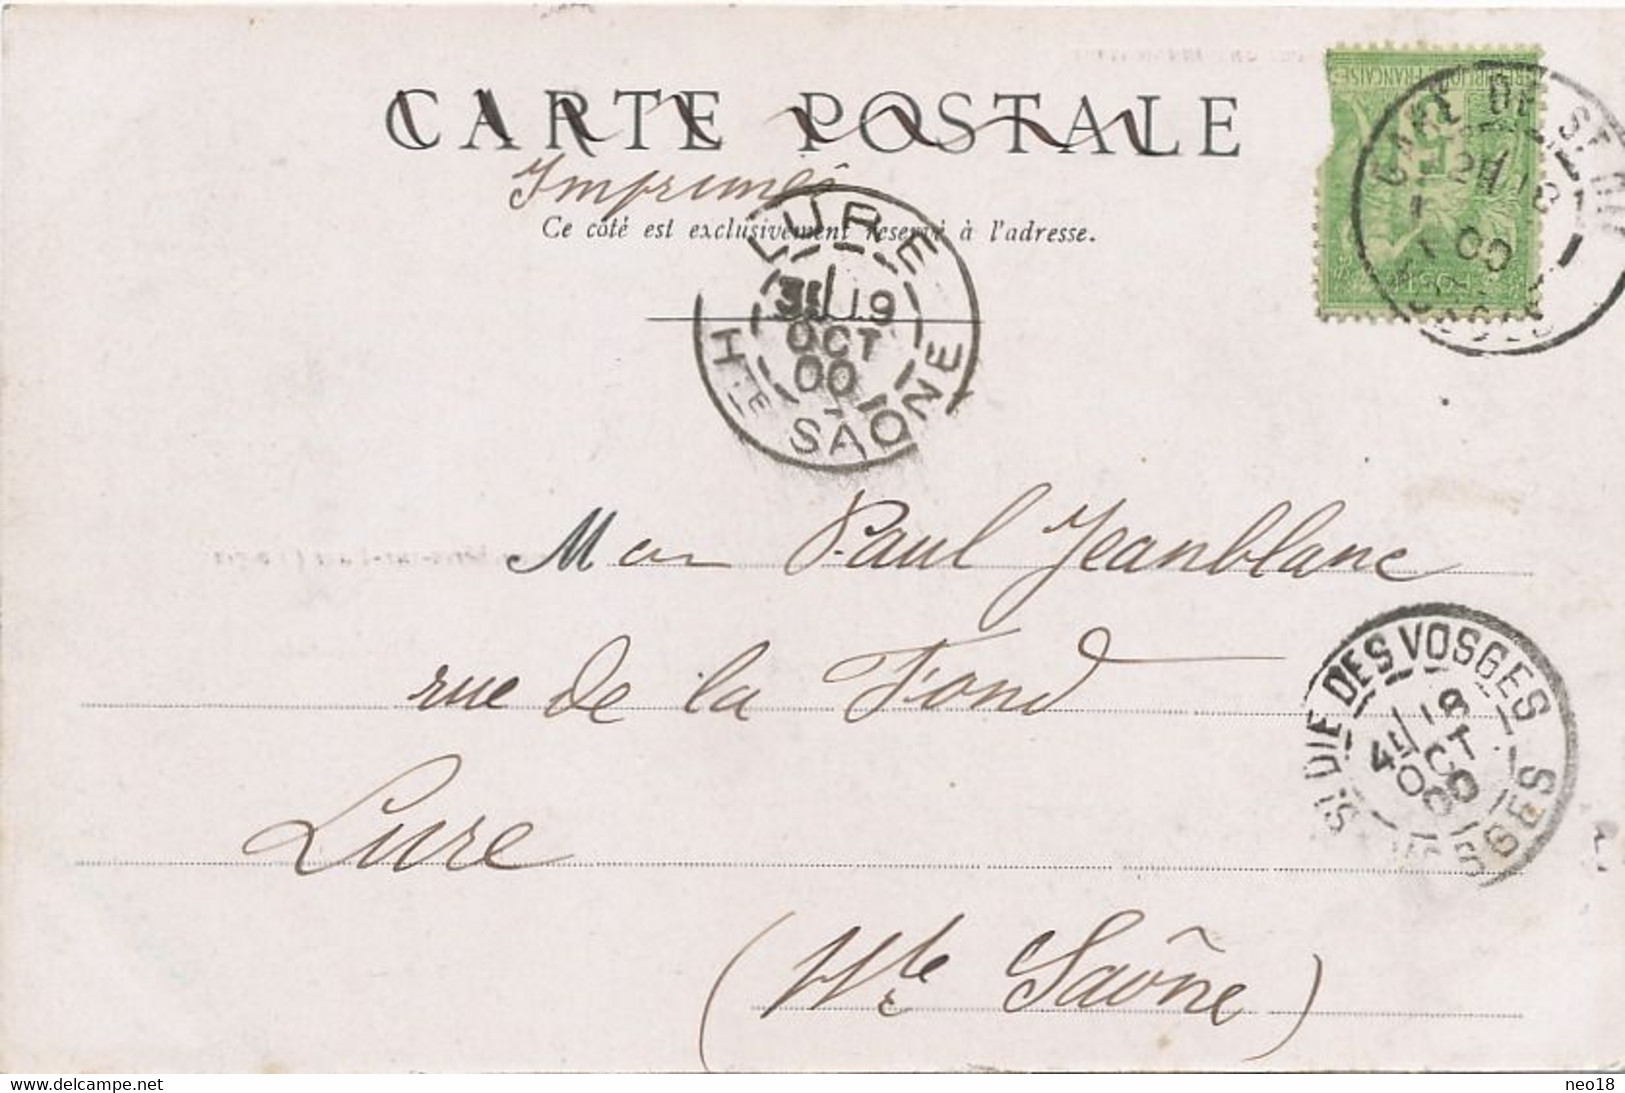 CARTE POSTALE
Imprimés
Ce côté est exclusivement réservé à l'adresse.
RÉPUBLIQUE FRANÇAISE
GARE DE ST DIE
18
00
LURE
3E 19
OCT
00
Hte SAONE
Mon Paul Jeanblanc
rue de la Fond
Lure
(Hte Saône)
St DIE DES VOSGES
4E 18
OCT
00
VOSGES
www.delcampe.net
neo18